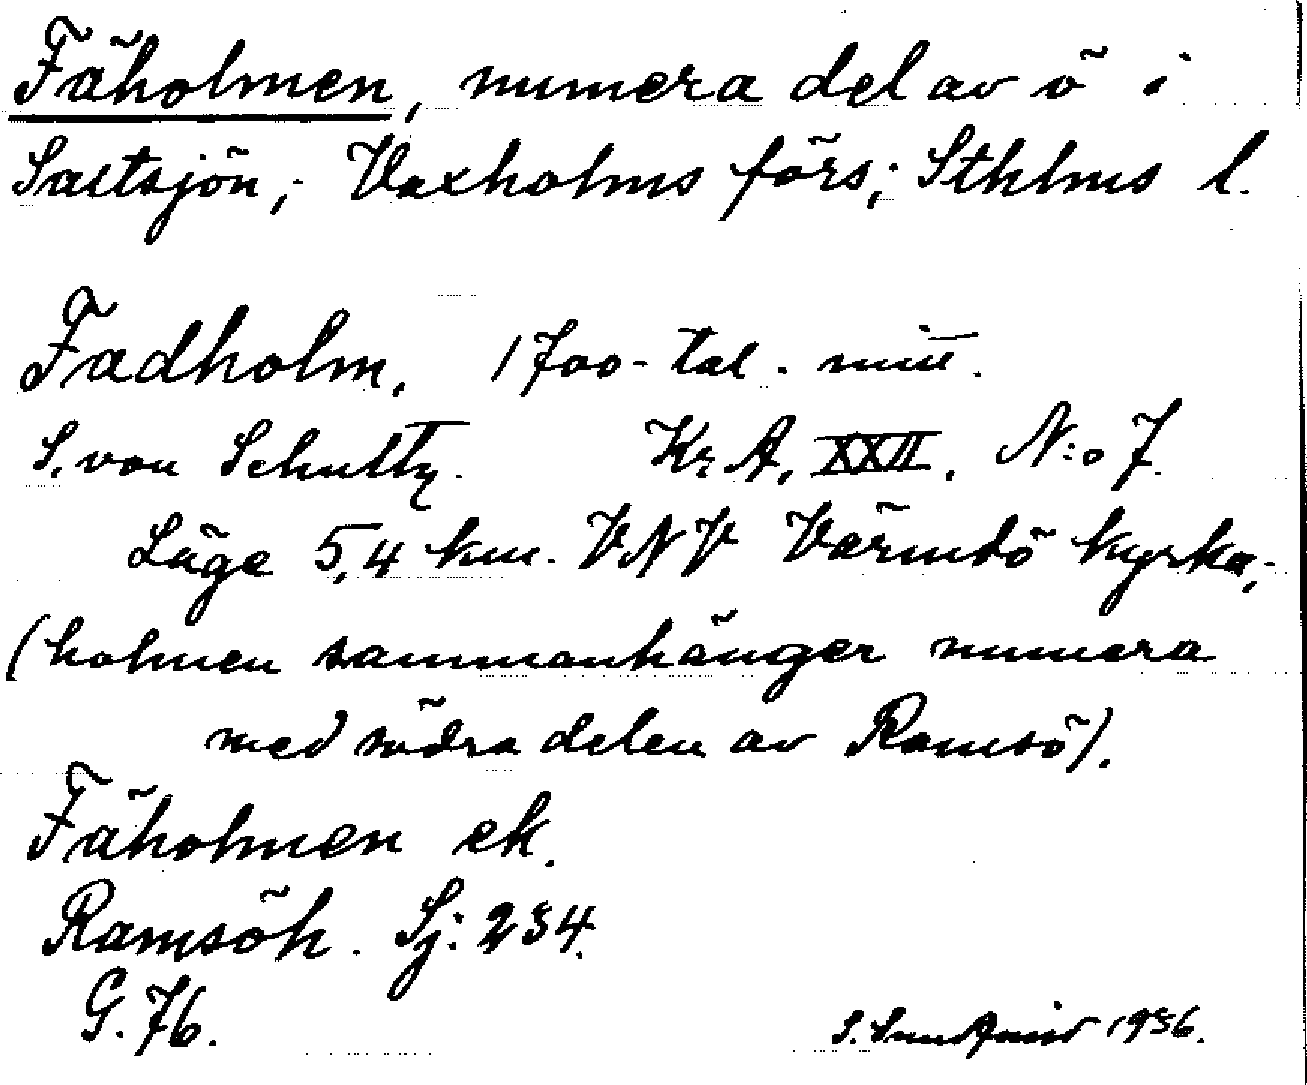 Fäholmen, numera del av ö i
Saltsjön, Vaxholms förs; Sthlms l.
Fadholm, 1700-tal. mitt.
S. von Schultz. Kr. A, XXII. N:o 7.
Läge 5,4 km. VNV Värmdö kyrka,
(holmen sammanhänger numera
med södra delen av Ramsö).
Fäholmen ek.
Ramsöh. Sj: 234.
G. 76.
S. 1936.